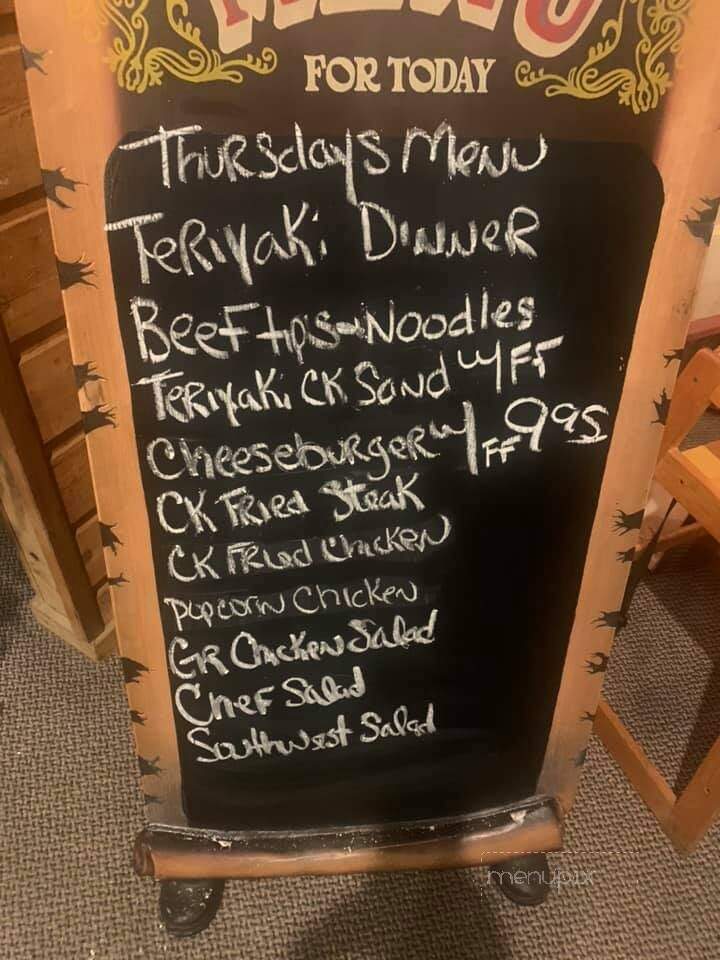 MENU
FOR TODAY
Thursdays Menu
Teriyaki Dinner
Beef tips Noodles
Teriyaki CK Sand w/FF
Cheeseburger w/FF 995
CK Fried Steak
CK Fried Chicken
popcorn Chicken
GR Chicken Salad
Chef Salad
Southwest Salad
menupix